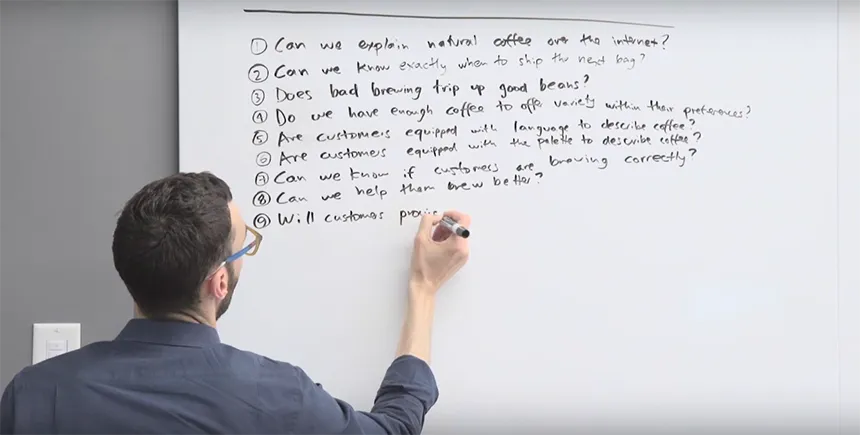 ① Can we explain natural coffee over the internet?
② Can we know exactly when to ship the next bag?
③ Does bad brewing trip up good beans?
④ Do we have enough coffee to offer variety within their preferences?
⑤ Are customers equipped with language to describe coffee?
⑥ Are customers equipped with the palette to describe coffee?
⑦ Can we know if customers are brewing correctly?
⑧ Can we help them brew better?
⑨ Will customers